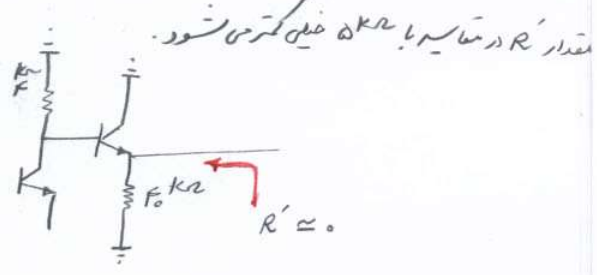 مقدار R′ در مقایسه با ۵kΩ خیلی کمتر می شود.
۴kΩ
۴۰kΩ
R′ ≃ ۰